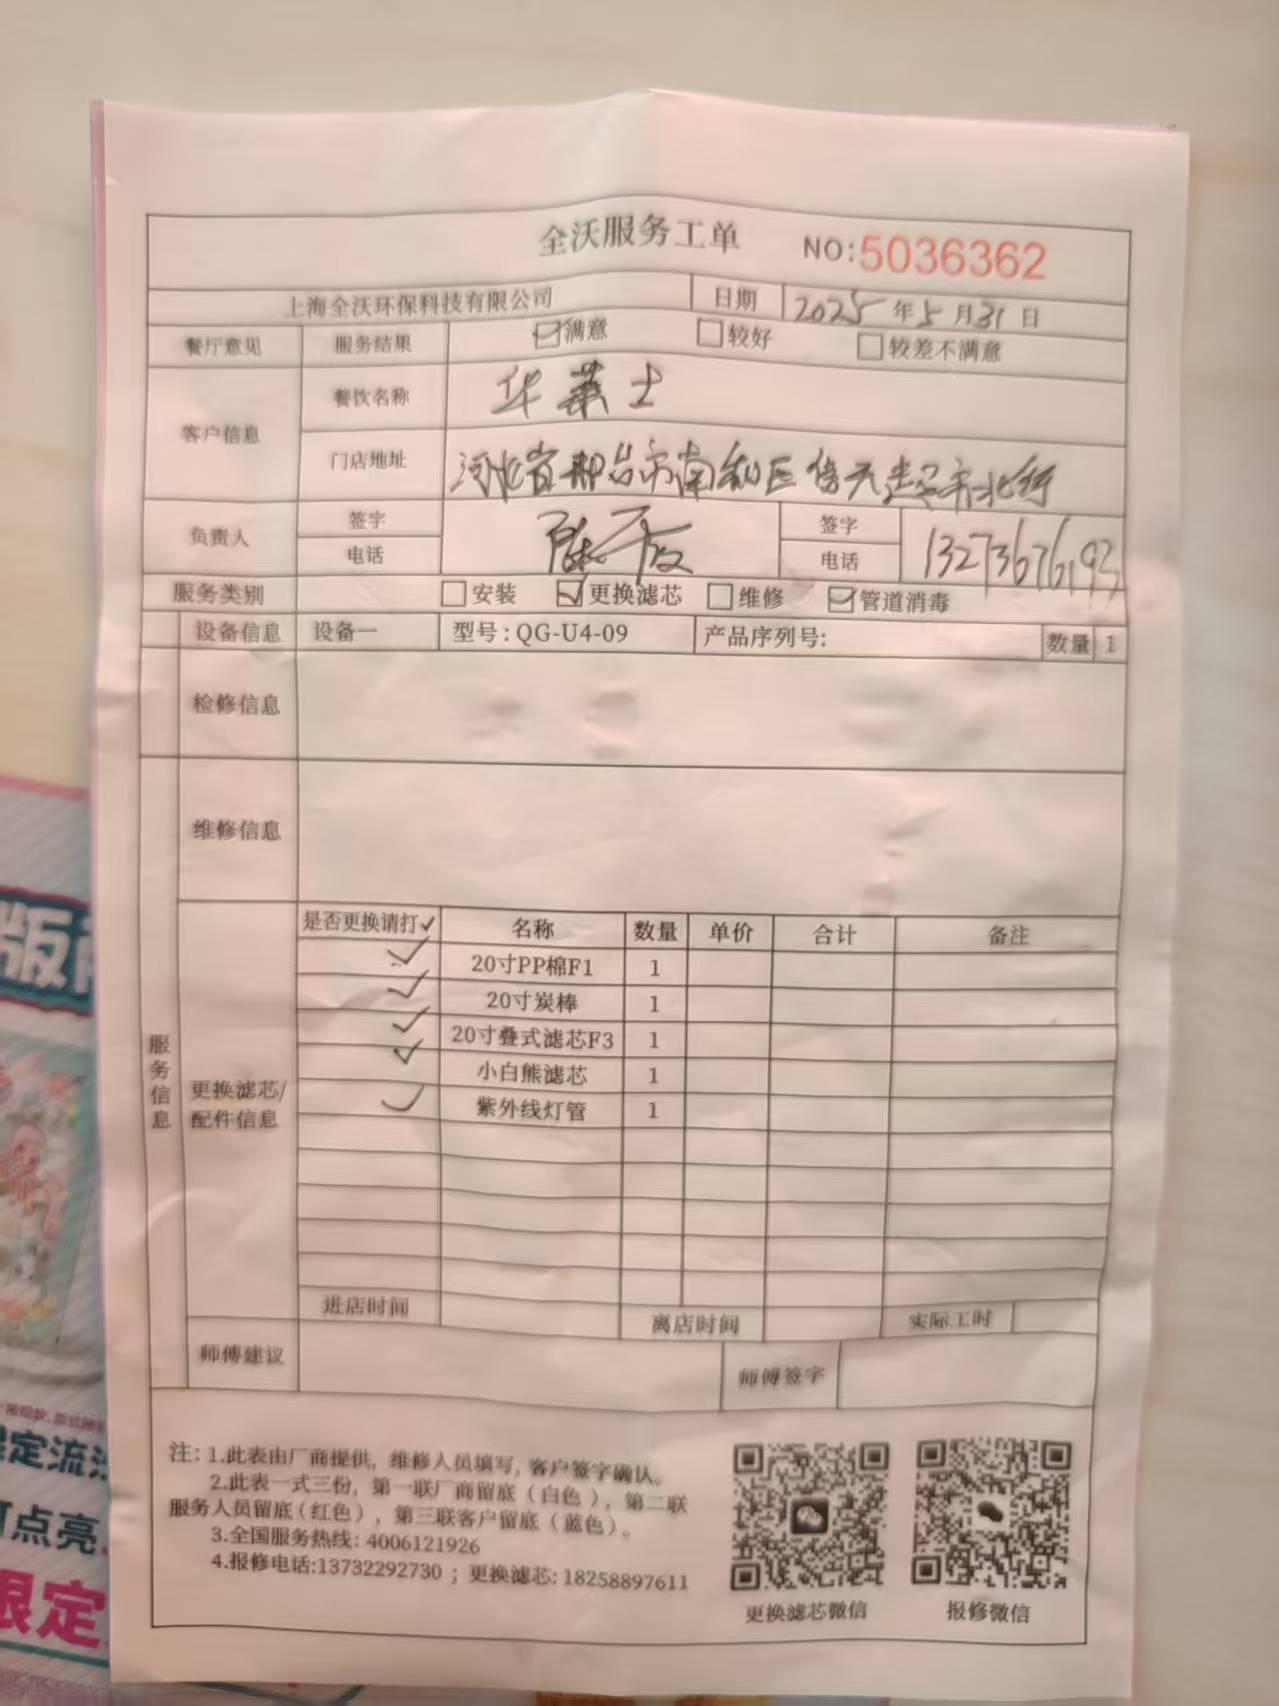 全沃服务工单 NO:5036362
上海全沃环保科技有限公司 日期 2025年5月31日
餐厅意见 服务结果 满意 较好 较差不满意
客户信息 餐饮名称 华莱士
门店地址 河北省邢台市南和区 超市北行
负责人 签字 电话 签字 电话 13273676193
服务类别 安装 更换滤芯 维修 管道消毒
设备信息 设备一 型号:QG-U4-09 产品序列号: 数量 1
检修信息
维修信息
服务信息
更换滤芯/
配件信息
是否更换请打✓ 名称 数量 单价 合计 备注
✓ 20寸PP棉F1 1
✓ 20寸炭棒 1
✓ 20寸叠式滤芯F3 1
✓ 小白熊滤芯 1
✓ 紫外线灯管 1
进店时间 离店时间 实际工时
师傅建议 师傅签字
注: 1.此表由厂商提供, 维修人员填写, 客户签字确认。
2.此表一式三份, 第一联厂商留底(白色), 第二联
服务人员留底(红色), 第三联客户留底(蓝色)。
3.全国服务热线: 4006121926
4.报修电话:13732292730 ; 更换滤芯: 18258897611
更换滤芯微信 报修微信
版
定流
可点亮
限定